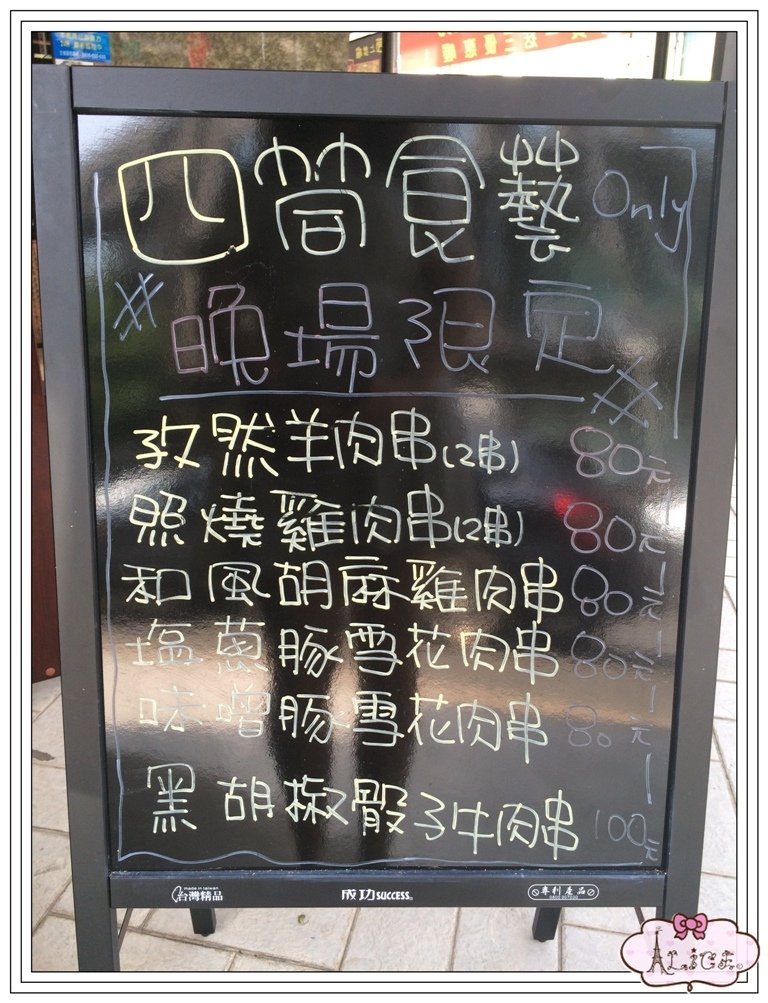 四筒食藝 Only
#晚場限定#
孜然羊肉串(2串) 80元
照燒雞肉串(2串) 80元
和風胡麻雞肉串 80元
塩蔥豚雪花肉串 80元
味噌豚雪花肉串 80元
黑胡椒骰子牛肉串 100元
made in taiwan
台灣精品
成功SUCCESS
專利產品
ALICE